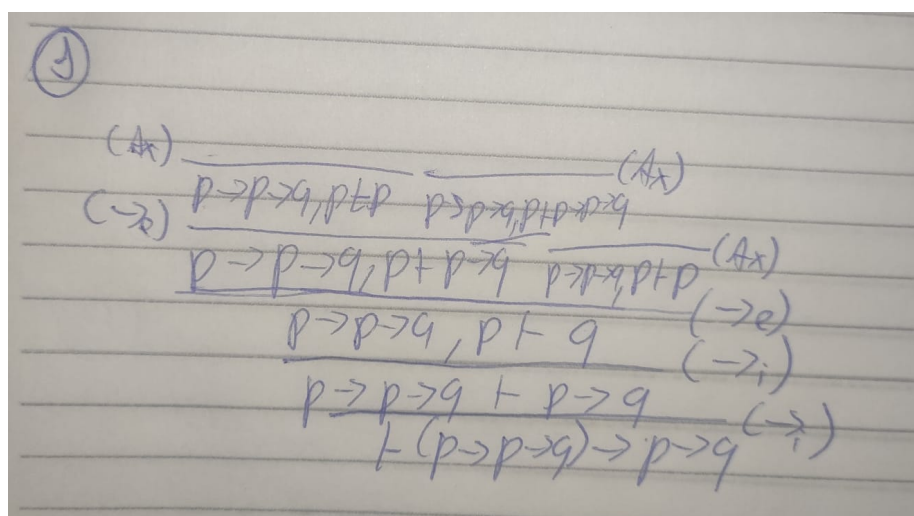 1
(Ax) (Ax)
p→p→q, p⊢p p→p→q, p⊢p→p→q
(→e)
p→p→q, p⊢p→q p→p→q, p⊢p (Ax)
(→e)
p→p→q, p⊢q
(→i)
p→p→q ⊢ p→q
(→i)
⊢(p→p→q)→p→q